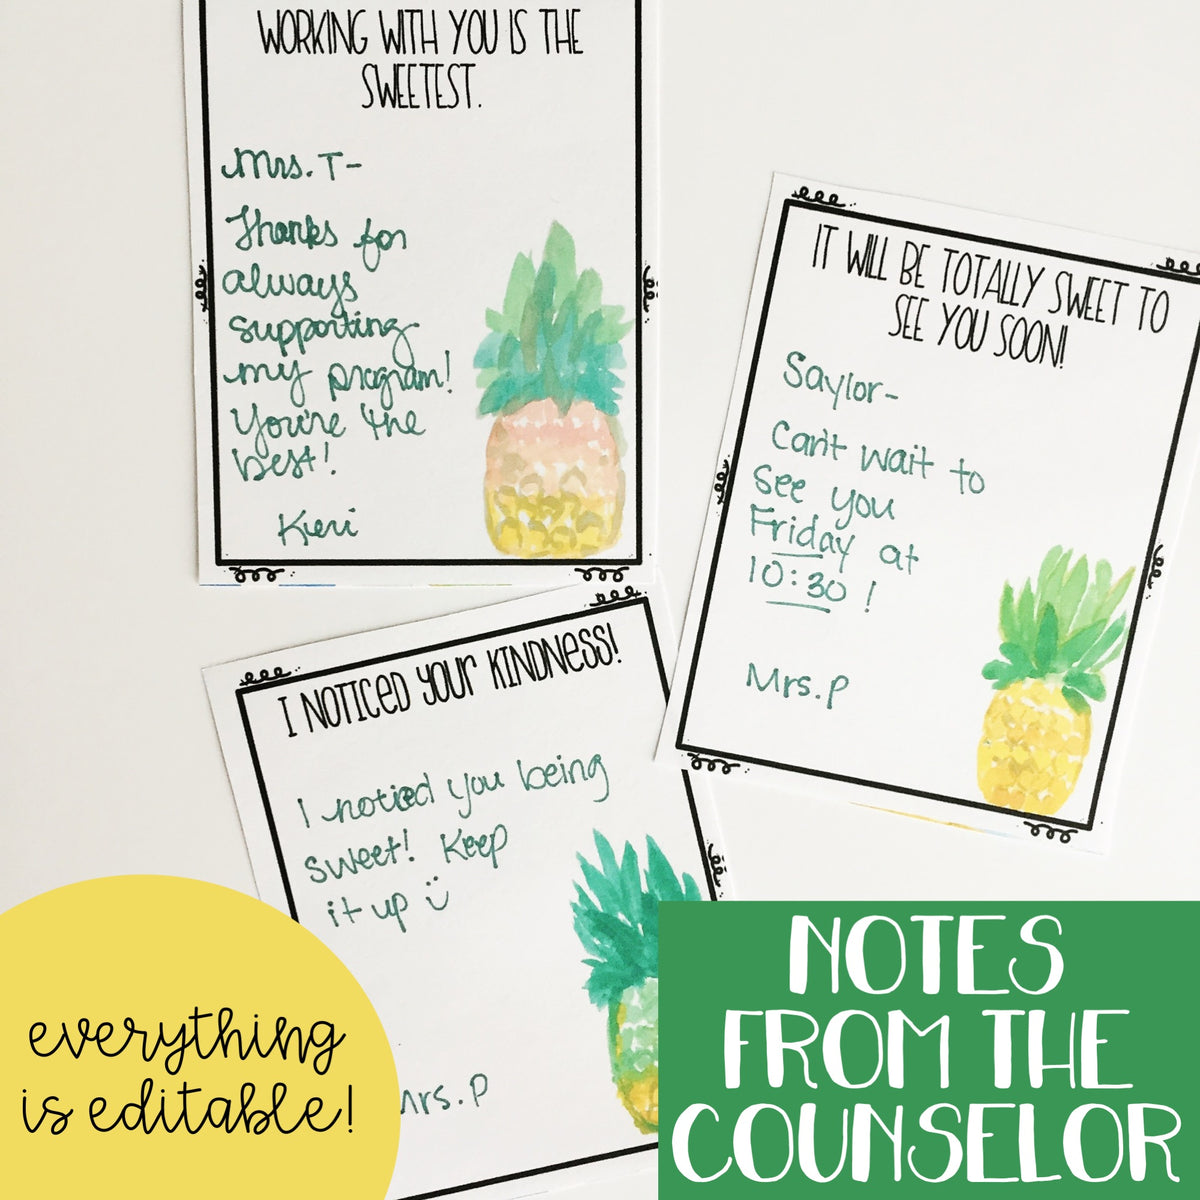 WORKING WITH YOU IS THE
SWEETEST.
Mrs. T-
Thanks for
always
supporting
my program!
You're the
best!
Keri
IT WILL BE TOTALLY SWEET TO
SEE YOU SOON!
Saylor-
Can't wait to
see you
Friday at
10:30!
Mrs. P
I NOTICED YOUR KINDNESS!
I noticed you being
sweet! Keep
it up
Mrs. P
everything
is editable!
NOTES
FROM THE
COUNSELOR